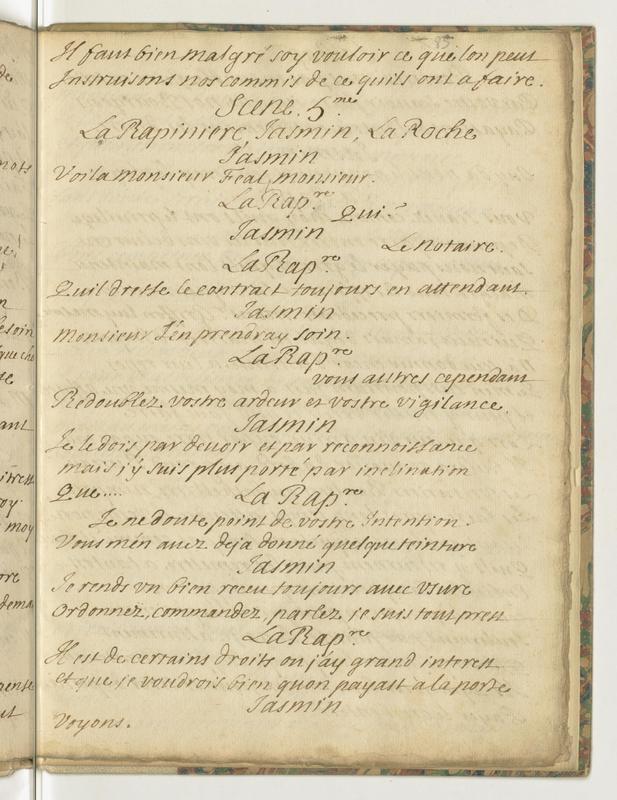 85
Il faut bien malgré soy vouloir ce que lon peut
Instruisons nos commis de ce quils ont a faire.
Scene. 5.me
La Rapiniere, Jasmin, La Roche
Jasmin
Voila monsieur Feal, monsieur.
La Rap.re
Qui?
Jasmin
Le notaire.
La Rap.re
Quil dresse le contract toujours en attendant.
Jasmin
Monsieur J'en prendray soin.
La Rap.re
vous autres cependant
Redoublez vostre ardeur et vostre vigilance.
Jasmin
Je le dois par devoir et par reconnoissance
mais j'y suis plus porté par inclination
Que....
La Rap.re
Je ne doute point de vostre Intention.
Vous m'en avez deja donné quelque teinture
Jasmin
Je rends vn bien receu toujours avec vsure
Ordonnez, commandez, parlez, je suis tout prest
La Rap.re
Il est de certains droits ou j'ay grand interest
et que je voudrois bien quon payast a la porte
Jasmin
Voyons.